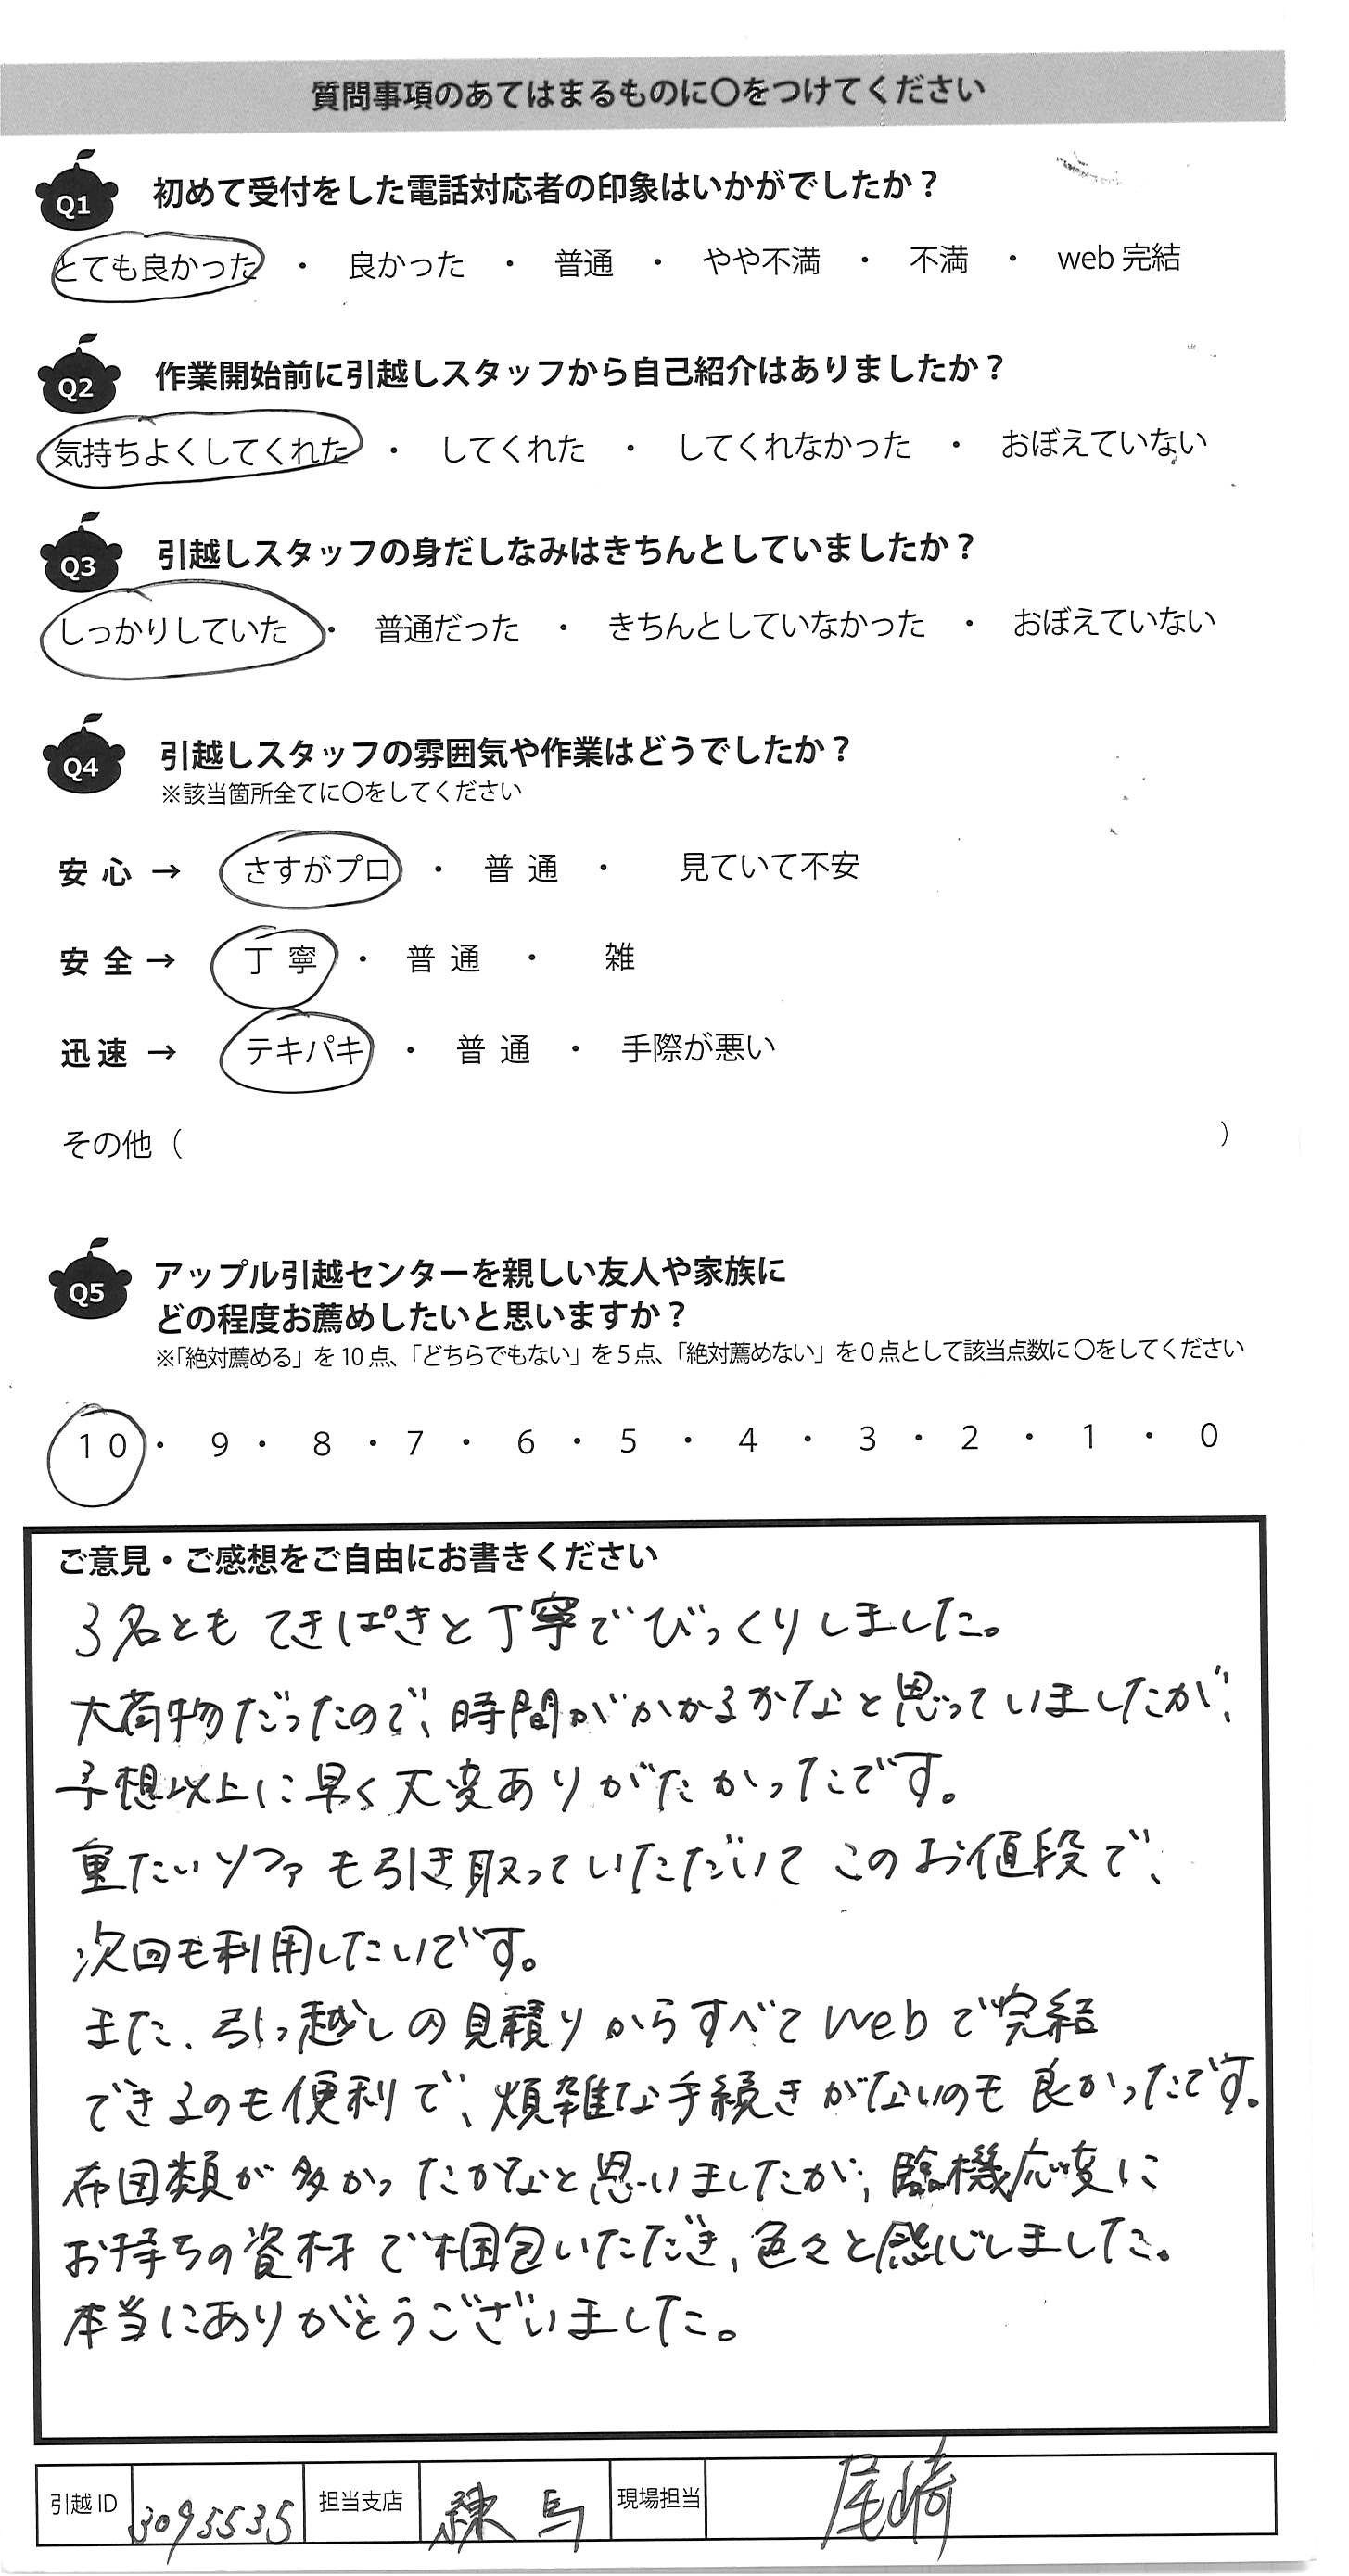 質問事項のあてはまるものに〇をつけてください
Q1 初めて受付をした電話対応者の印象はいかがでしたか？
とても良かった ・ 良かった ・ 普通 ・ やや不満 ・ 不満 ・ web 完結
Q2 作業開始前に引越しスタッフから自己紹介はありましたか？
気持ちよくしてくれた ・ してくれた ・ してくれなかった ・ おぼえていない
Q3 引越しスタッフの身だしなみはきちんとしていましたか？
しっかりしていた ・ 普通だった ・ きちんとしていなかった ・ おぼえていない
Q4 引越しスタッフの雰囲気や作業はどうでしたか？
※該当箇所全てに〇をしてください
安心 → さすがプロ ・ 普通 ・ 見ていて不安
安全 → 丁寧 ・ 普通 ・ 雑
迅速 → テキパキ ・ 普通 ・ 手際が悪い
その他（ ）
Q5 アップル引越センターを親しい友人や家族に
どの程度お薦めしたいと思いますか？
※「絶対薦める」を 10 点、「どちらでもない」を 5 点、「絶対薦めない」を 0 点として該当点数に 〇をしてください
10 ・ 9 ・ 8 ・ 7 ・ 6 ・ 5 ・ 4 ・ 3 ・ 2 ・ 1 ・ 0
ご意見・ご感想をご自由にお書きください
3名とも てきぱきと丁寧でびっくりしました。
大荷物だったので、時間がかかるかなと思っていましたが、
予想以上に早く大変ありがたかったです。
重たいソファも引き取っていただいてこのお値段で、
次回も利用したいです。
また、引っ越しの見積りからすべてWebで完結
できるのも便利で、煩雑な手続きがないのも良かったです。
布団類が多かったかなと思いましたが、臨機応変に
お持ちの資材で梱包いただき、色々と感心しました。
本当にありがとうございました。
引越 ID 3095535 担当支店 練馬 現場担当 尾崎